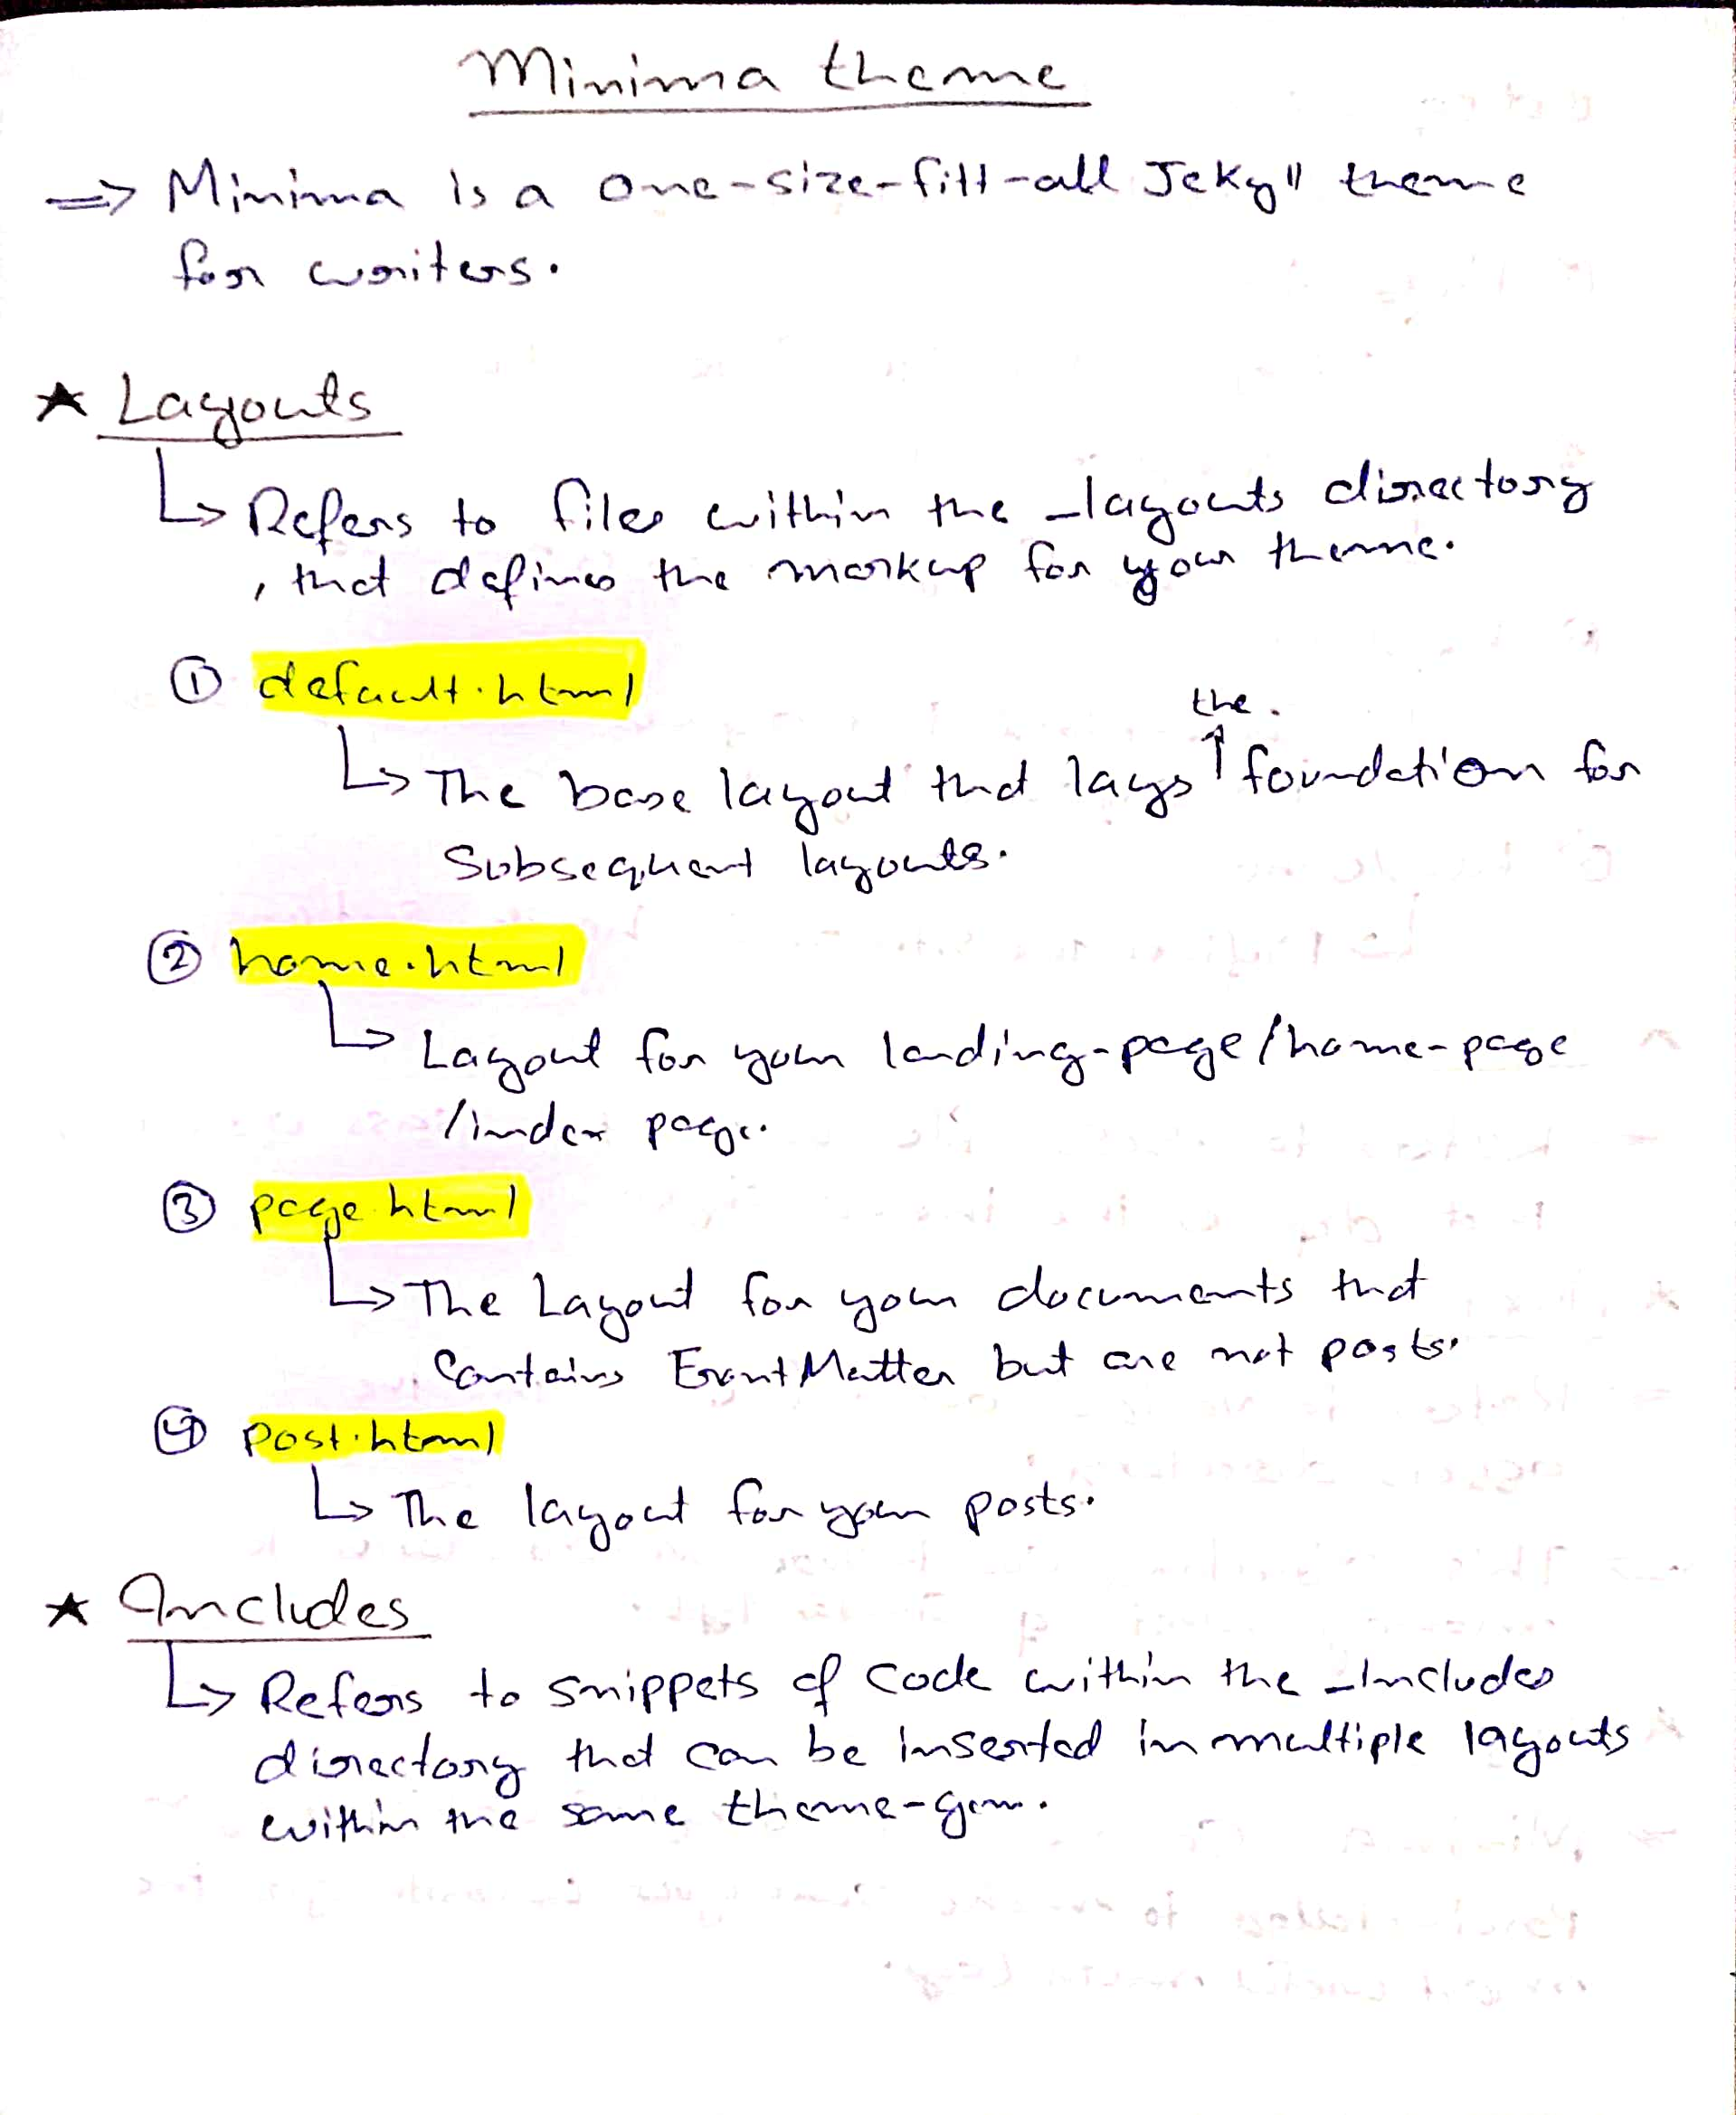 Minima theme
=> Minima is a one-size-fitt-all Jekyll theme
for writers.
★ Layouts
↳ Refers to files within the _layouts directory
, that defines the markup for your theme.
① default.html
the.
↳ The base layout that lays ↑ foundation for
Subsequent layouts.
② home.html
↳ Layout for your landing-page/home-page
/index page.
③ page.html
↳ The Layout for your documents that
Contains FrontMatter but are not posts.
④ post.html
↳ The layout for your posts.
★ Includes
↳ Refers to snippets of code within the _Includes
directory that can be inserted in multiple layouts
within the same theme-gem.